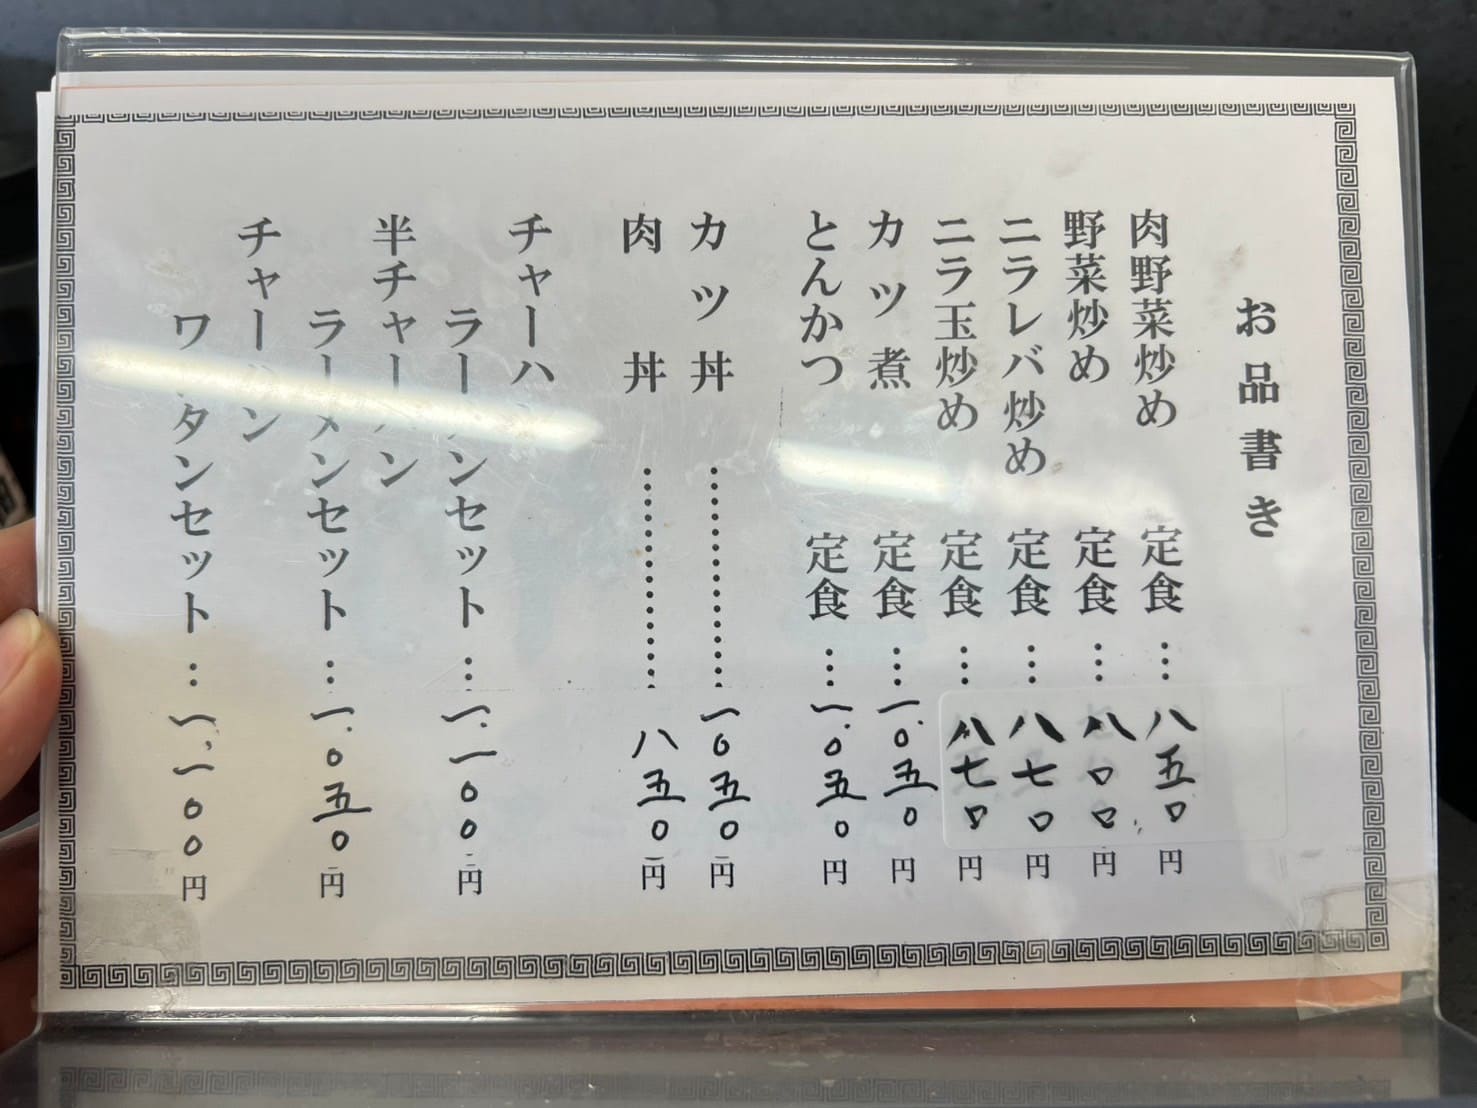 お品書き
肉野菜炒め 定食…八五〇円
野菜炒め 定食…八〇〇円
ニラレバ炒め 定食…八七〇円
ニラ玉炒め 定食…八七〇円
カツ煮 定食…一、〇五〇円
とんかつ 定食…一、〇五〇円
カツ丼……………一〇五〇円
肉丼……………八五〇円
チャーハン
ラーメンセット…一、一〇〇円
半チャーハン
ラーメンセット…一、〇五〇円
チャーハン
ワンタンセット…一、一〇〇円